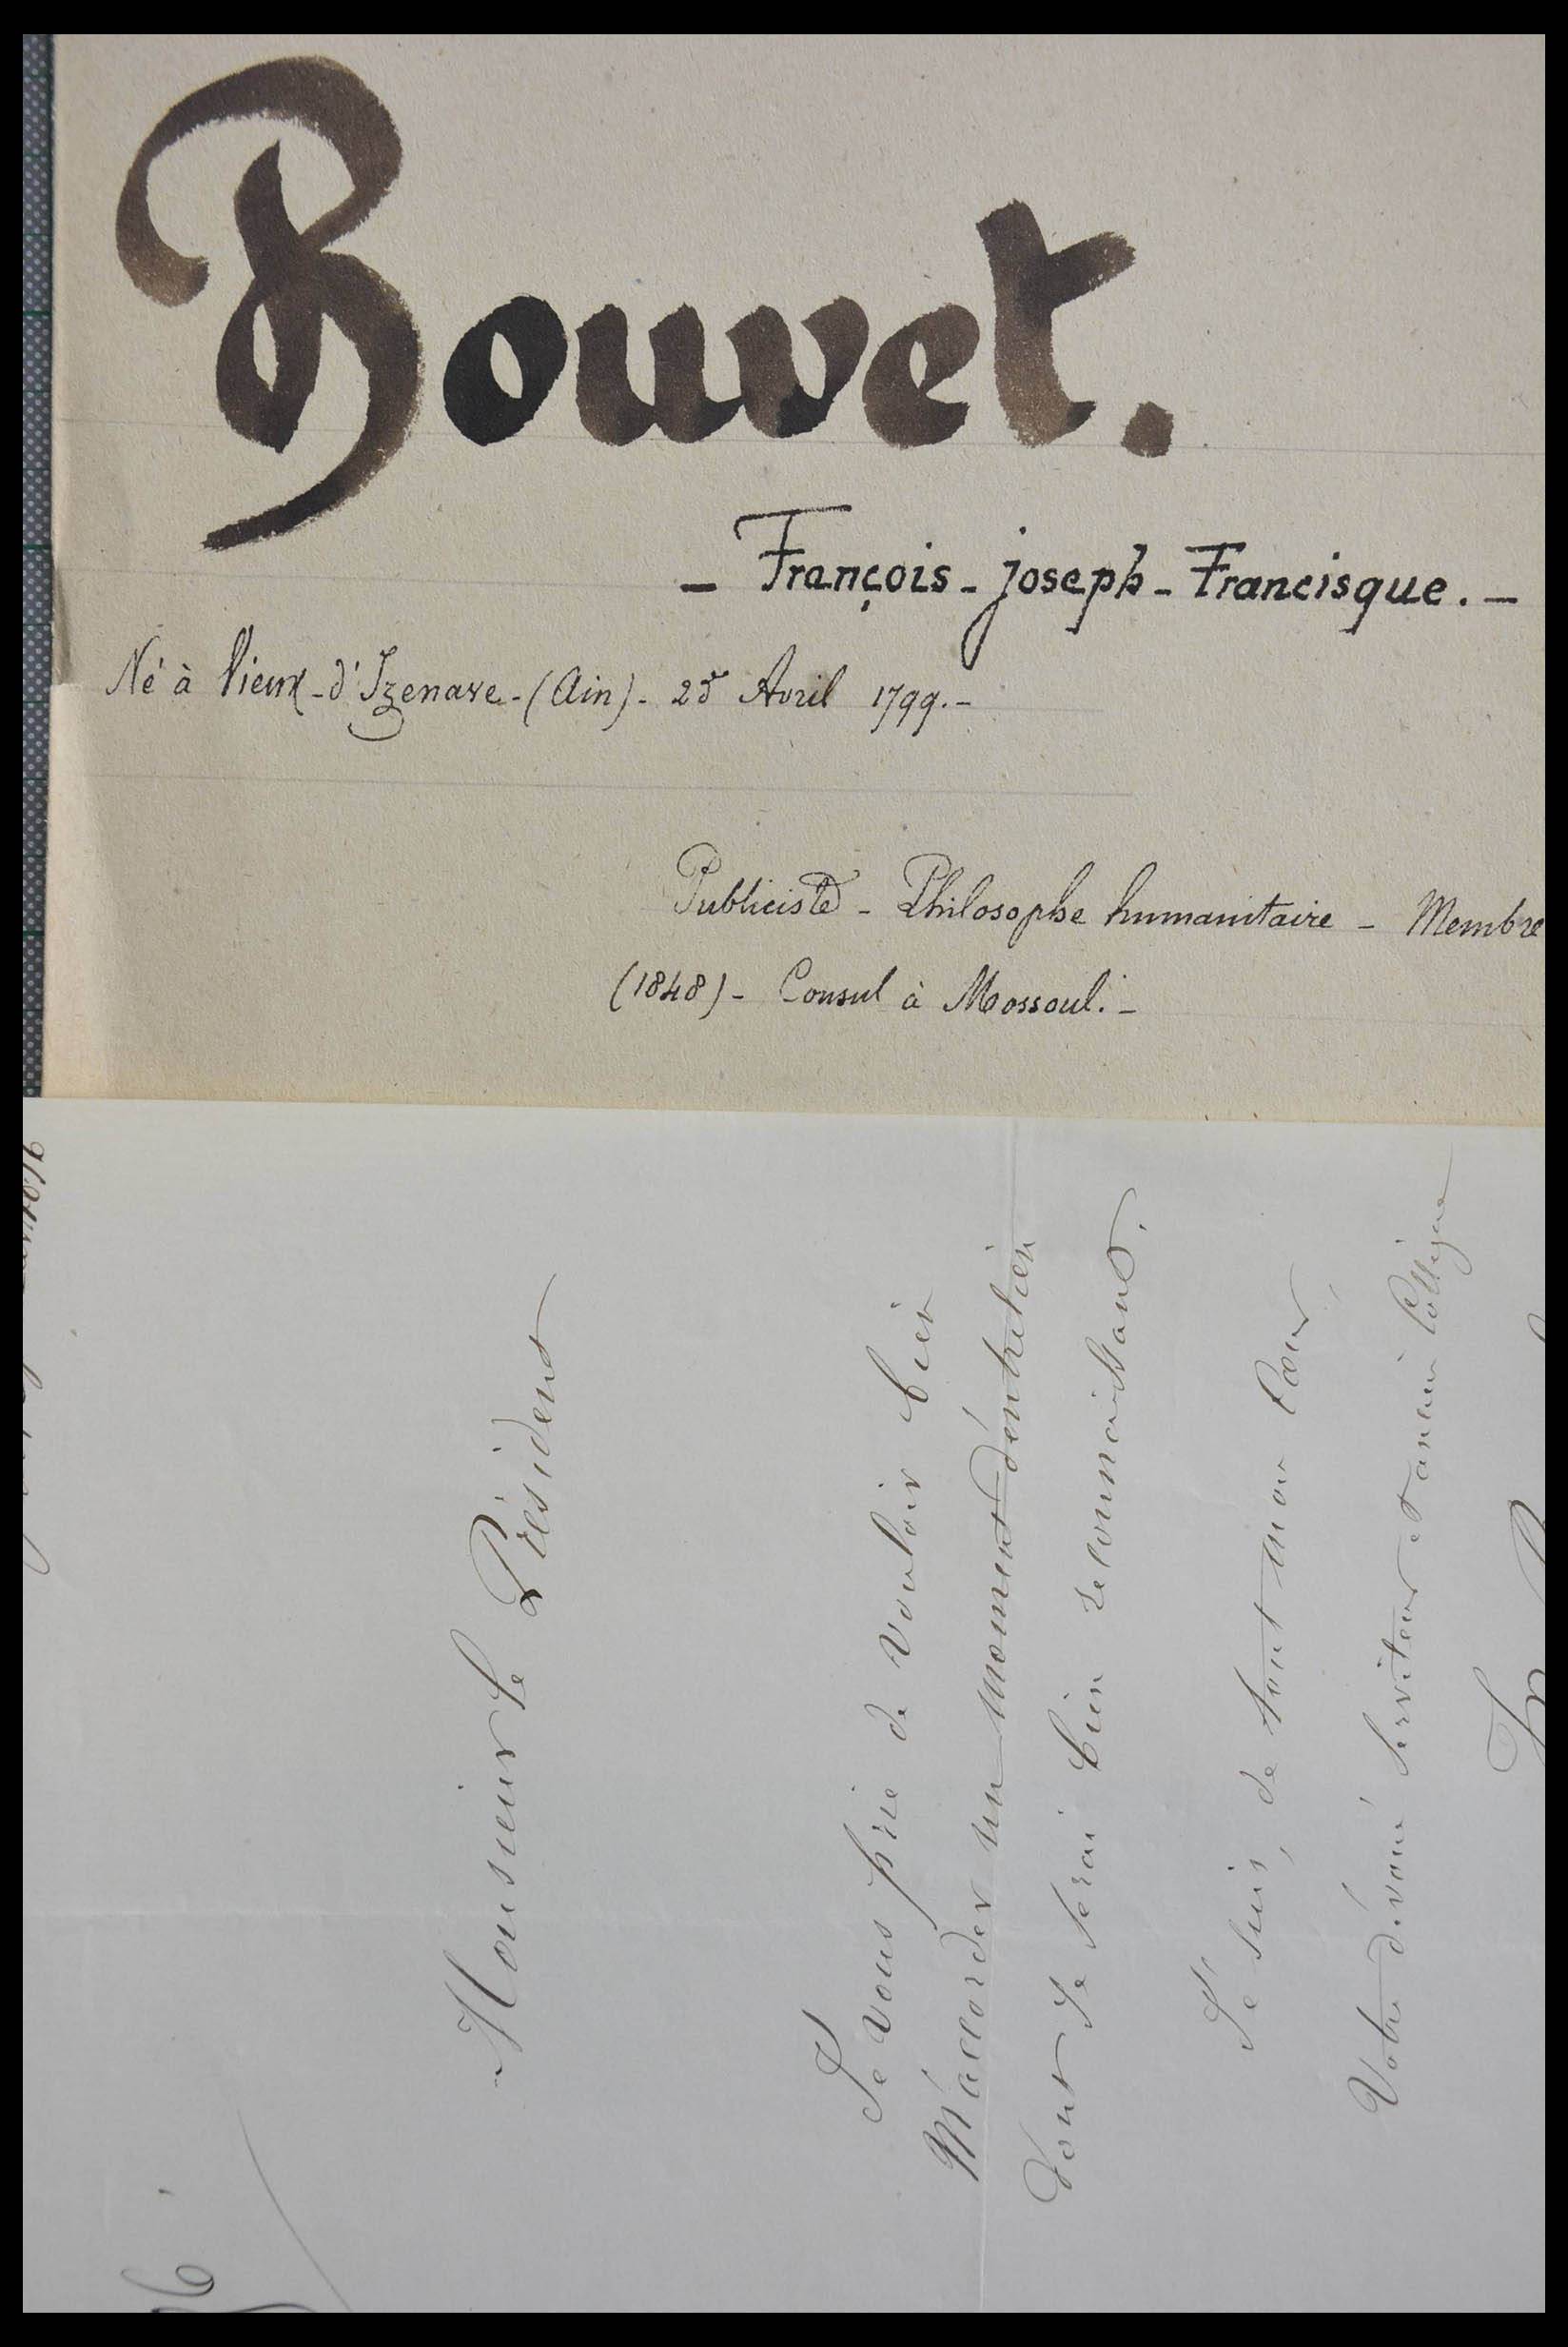 Bouvet.
— François-Joseph-Francisque. —
Né à Vieux-d'Izenave-(Ain)- 25 Avril 1799.-
Publiciste - Philosophe humanitaire - Membre
(1848) - Consul à Mossoul. -
Monsieur le Président
Je vous prie de vouloir bien
M'accorder un moment d'entretien
Dont Je Serai bien reconnaissant.
Je suis, de tout mon Cœur,
Votre dévoué Serviteur et ancien Collègue